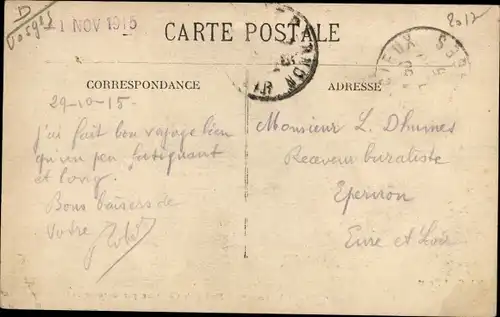 D
Vosges
1 NOV 1915
2012
CARTE POSTALE
CORRESPONDANCE
ADRESSE
29-10-15
j'ai fait bon voyage bien
qu'un peu fatiguant
et long.
Bons baisers de
Votre
Monsieur L. Dhumes
Receveur buraliste
Epernon
Eure et Loir